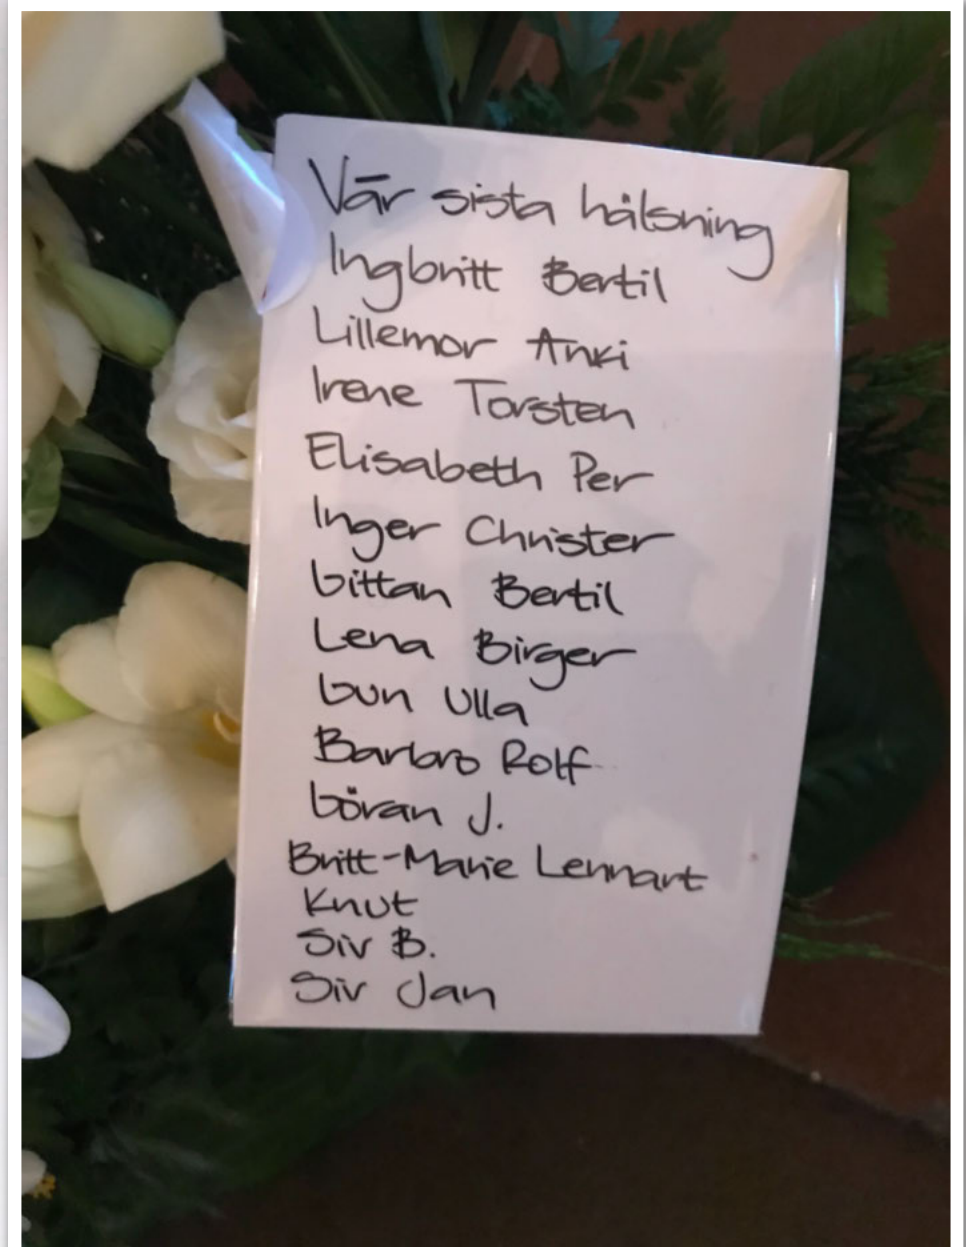 Vår sista hälsning
Ingbritt Bertil
Lillemor Anki
Irene Torsten
Elisabeth Per
Inger Christer
Gittan Bertil
Lena Birger
Gun Ulla
Barbro Rolf
Göran J.
Britt-Marie Lennart
Knut
Siv B.
Siv Jan